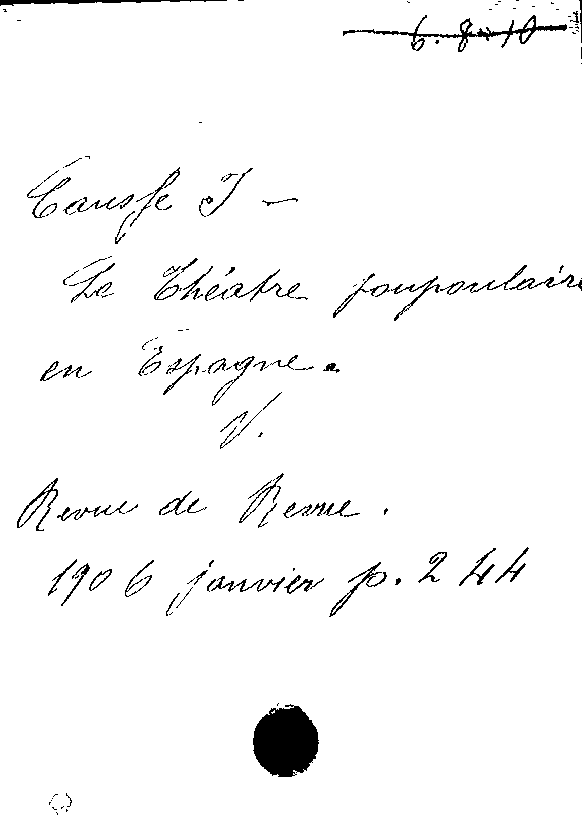 6. 8-10
Causse J -
Le Théatre poupoulaire
en Espagne.
V.
Revue de Revue.
1906 janvier p. 244